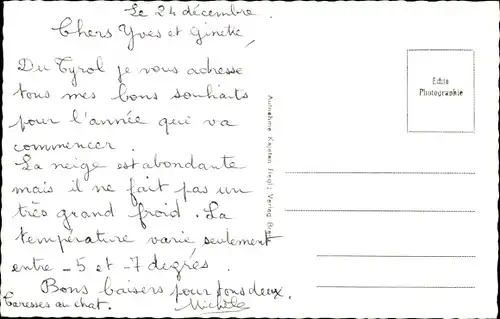 Le 24 décembre.
Chers Yves et Ginette,
Du Tyrol je vous adresse
tous mes bons souhaits
pour l'année qui va
commencer.
La neige est abondante
mais il ne fait pas un
très grand froid. La
température varie, seulement
entre -5 et -7 degrés.
Bons baisers pour tous deux.
Caresses au chat. Michèle
Echte
Photographie
Aufnahme Kajetan Verlag